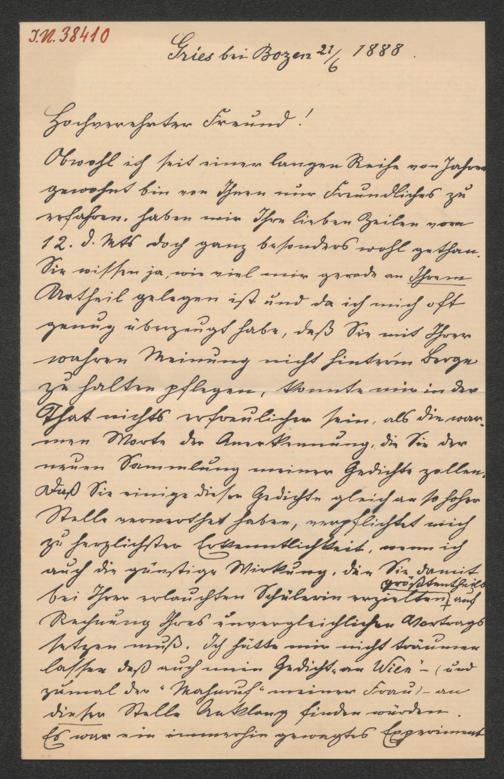 I.N. 38410
Gries bei Bozen 21/6 1888.
Hochverehrter Freund!
Obwohl ich seit einer langen Reihe von Jahren
gewohnt bin von Ihnen nur Freundliches zu
erfahren, haben mir Ihre lieben Zeilen vom
12. d. Mts doch ganz besonders wohl gethan.
Sie wissen ja, wie viel mir gerade an Ihrem
Urtheil gelegen ist und da ich mich oft
genug überzeugt habe, daß Sie mit Ihrer
wahren Meinung nicht hinterm Berge
zu halten pflegen, konnte mir in der
That nichts erfreulicher sein, als die war-
men Worte der Anerkennung, die Sie der
neuen Sammlung meiner Gedichte zollen.
Daß Sie einige dieser Gedichte gleich an so hoher
Stelle verwerthet haben, verpflichtet mich
zu herzlichster Erkenntlichkeit, wenn ich
auch die günstige Wirkung, die Sie damit
bei Ihrer erlauchten Schülerin erzielten, größtentheils auf
Rechnung Ihres unvergleichlichen Vortrags
setzen muß. Ich hätte mir nicht träumen
lassen daß auch mein Gedicht "an Wien" – (und
zumal der "Mahnruf" meiner Frau) – an
dieser Stelle Anklang finden würden.
Es war ein immerhin gewagtes Experiment